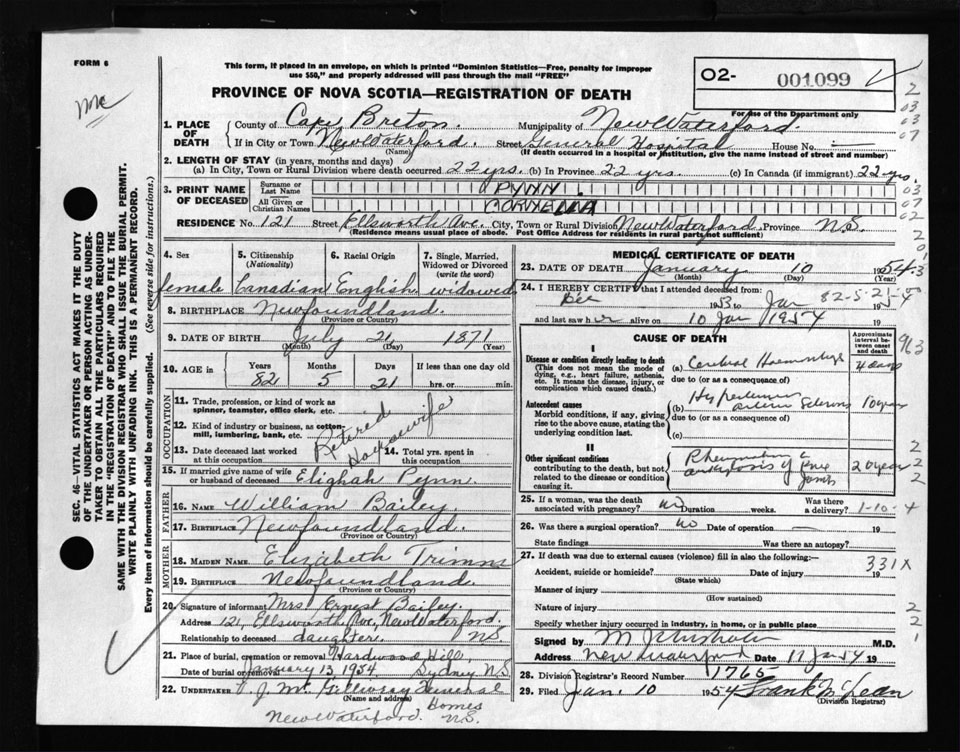 FORM 6
This form, if placed in an envelope, on which is printed "Dominion Statistics—Free, penalty for improper
use $50," and properly addressed will pass through the mail "FREE"
PROVINCE OF NOVA SCOTIA—REGISTRATION OF DEATH
O2- 001099
For use of the Department only
1. PLACE OF DEATH County of Cape Breton. Municipality of New Waterford.
If in City or Town New Waterford. Street General Hospital House No. —
(Name) (If death occurred in a hospital or institution, give the name instead of street and number)
2. LENGTH OF STAY (in years, months and days)
(a) In City, Town or Rural Division where death occurred 22 yrs. (b) In Province 22 yrs. (c) In Canada (if immigrant) 22 yrs.
3. PRINT NAME OF DECEASED Surname or Last Name PYNN.
All Given or Christian Names
RESIDENCE No. 121 Street Ellsworth Ave. City, Town or Rural Division New Waterford. Province N.S.
(Residence means usual place of abode. Post Office Address for residents in rural parts not sufficient)
4. Sex 5. Citizenship (Nationality) 6. Racial Origin 7. Single, Married, Widowed or Divorced (write the word)
female Canadian English widowed
8. BIRTHPLACE Newfoundland.
(Province or Country)
9. DATE OF BIRTH July 21 1871
(Month) (Day) (Year)
10. AGE in Years Months Days If less than one day old
82 5 21 hrs. or min.
OCCUPATION
11. Trade, profession, or kind of work as spinner, teamster, office clerk, etc.
12. Kind of industry or business, as cotton-mill, lumbering, bank, etc.
Retired Housewife
13. Date deceased last worked at this occupation 14. Total yrs. spent in this occupation
15. If married give name of wife or husband of deceased Elighah Pynn.
FATHER
16. NAME William Bailey.
17. BIRTHPLACE Newfoundland.
(Province or Country)
MOTHER
18. MAIDEN NAME Elizabeth Trimns
19. BIRTHPLACE Newfoundland
(Province or Country)
20. Signature of informant Mrs. Ernest Bailey.
Address 121, Ellsworth Ave, New Waterford. N.S.
Relationship to deceased daughter.
21. Place of burial, cremation or removal Hardwood Hill,
Date of burial or removal January 13, 1954 Sydney N.S.
22. UNDERTAKER Funeral Homes
(Name and address)
New Waterford. N.S.
MEDICAL CERTIFICATE OF DEATH
23. DATE OF DEATH January 10 1954
(Month) (Day) (Year)
24. I HEREBY CERTIFY that I attended deceased from:
Dec 1953 to Jan 82-5-21-4
and last saw her alive on 10 Jan 1954 19
CAUSE OF DEATH
Approximate interval between onset and death
I
Disease or condition directly leading to death
(This does not mean the mode of dying, e.g., heart failure, asthenia, etc. It means the disease, injury, or complication which caused death.)
(a) Cerebral Haemorrhage 4 days
due to (or as a consequence of)
Antecedent causes
Morbid conditions, if any, giving rise to the above cause, stating the underlying condition last.
(b) 10 years
due to (or as a consequence of)
(c)
II
Other significant conditions
contributing to the death, but not related to the disease or condition causing it.
ankylosis of knee joints 20 years
25. If a woman, was the death associated with pregnancy? no Duration weeks. Was there a delivery? 1-10-4
26. Was there a surgical operation? no Date of operation 19
State findings Was there an autopsy?
27. If death was due to external causes (violence) fill in also the following:—
Accident, suicide or homicide? Date of injury 19 331X
(State which)
Manner of injury
(How sustained)
Nature of injury
Specify whether injury occurred in industry, in home, or in public place
Signed by M.D.
Address New Waterford Date 11 Jan 54 19
28. Division Registrar's Record Number 1765
29. Filed Jan. 10 1954 Frank McLean
(Division Registrar)
SEC. 46—VITAL STATISTICS ACT MAKES IT THE DUTY
OF THE UNDERTAKER OR PERSON ACTING AS UNDER-
TAKER TO OBTAIN ALL THE PARTICULARS REQUIRED
IN THE "REGISTRATION OF DEATH" AND TO FILE THE
SAME WITH THE DIVISION REGISTRAR WHO SHALL ISSUE THE BURIAL PERMIT.
WRITE PLAINLY WITH UNFADING INK. THIS IS A PERMANENT RECORD.
Every item of information should be carefully supplied. (See reverse side for instructions.)